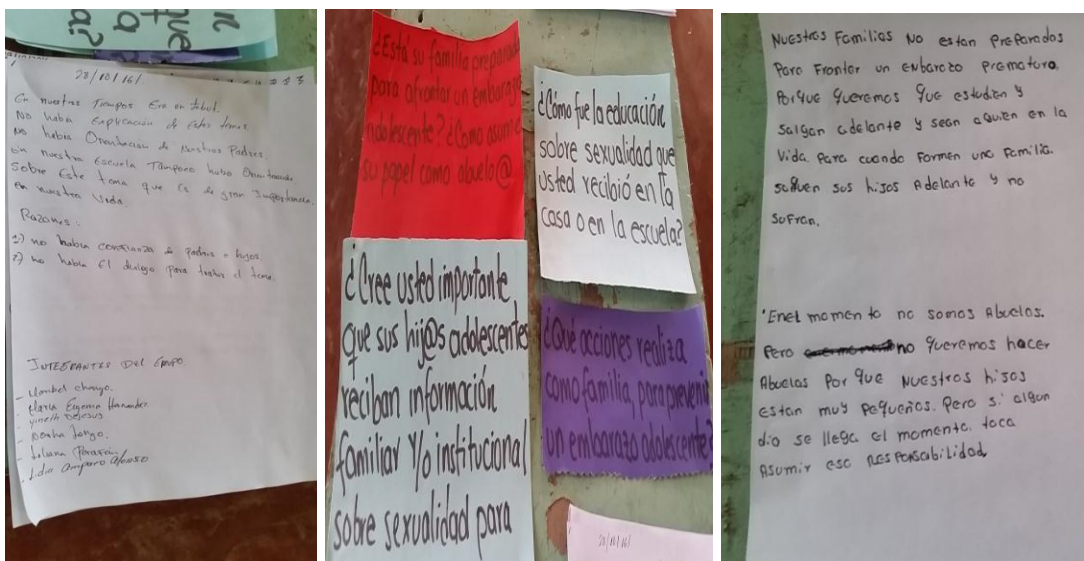 28/10/16/
En nuestros Tiempos Era un Tabut.
No habia Explicación de Estos temas.
No habia Orientación de Nuestros Padres.
En nuestra Escuela Tampoco hubo Orientación
Sobre Este tema que Es de gran Importancia.
en nuestra Vida.
Razones:
1) no habia confianza de Padres a hijos.
2) no habia El dialogo Para tratar el tema.
INTEGRANTES DEL GRUPO.
- Maribel
- Maria Eugenia Hernandez
- Yineth
- Liliana
- Lidia Amparo Afonso
¿Está su familia preparada
para afrontar un embarazo
adolescente? ¿Como asumiría
su papel como abuelo@
¿Cómo fue la educación
sobre sexualidad que
usted recibió en la
casa o en la escuela?
¿Cree usted importante
que sus hij@s adolescentes
reciban información
familiar y/o institucional
sobre sexualidad para
¿Qué acciones realiza
como familia, para prevenir
un embarazo adolescente?
28/10/16/
Nuestras Familias No estan Preparados
Para Frontar un enbarazo Prematuro.
Porque Queremos Que estudien y
Salgan adelante y sean alquien en la
Vida. Para cuando Formen una Familia.
saquen sus hijos Adelante y no
Sufran.
Enel momento no somos Abuelos.
Pero no Queremos hacer
Abuelas Por Que Nuestros hijos
estan muy Pequeños. Pero si algun
dia se llega el momento. toca
Asumir esa Responsabilidad